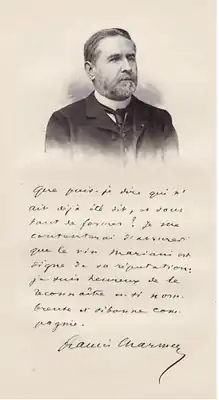 Que puis-je dire qui n'
ait déjà été dit, et sous
tant de formes ? Je me
contenterai d'assurer
que le vin Mariani est
digne de sa réputation.
je suis heureux de le
reconnaître en si nom-
breuse et si bonne com-
pagnie.
Francis Charmes